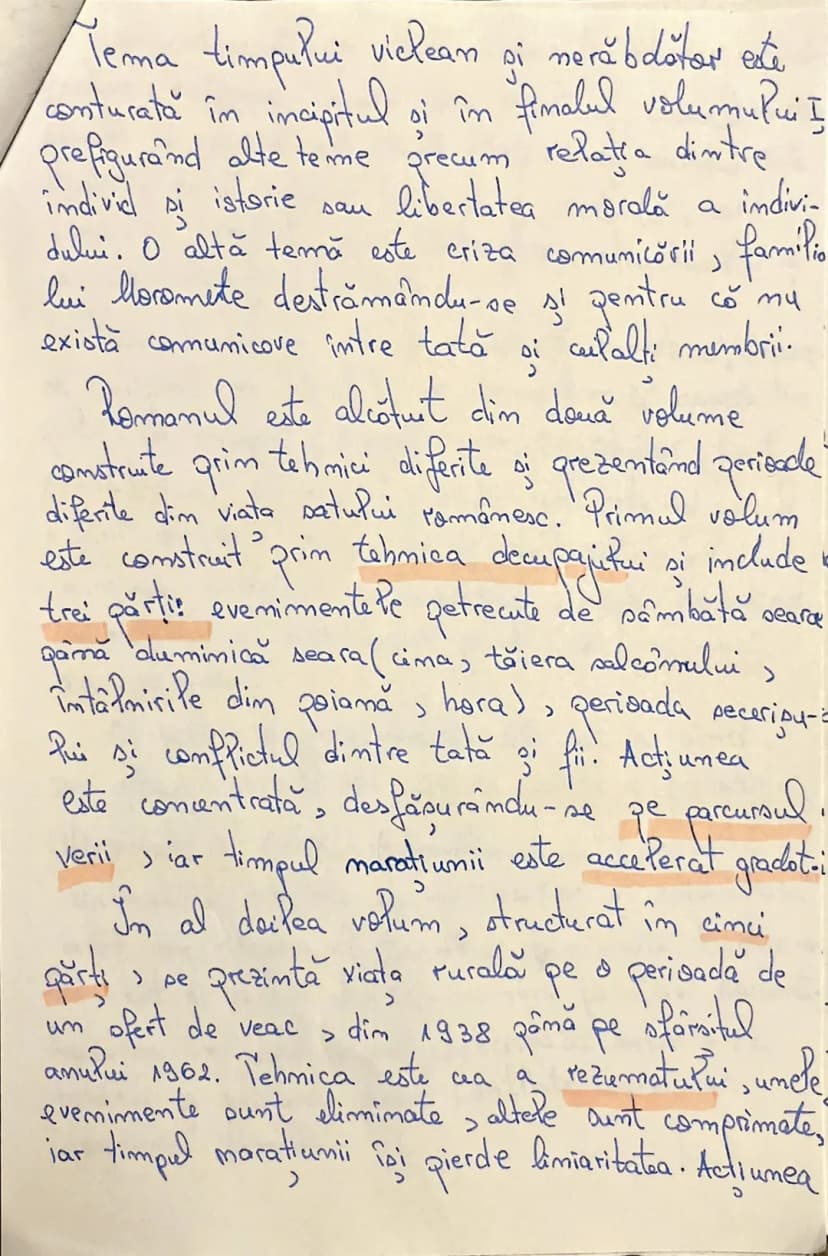 Tema timpului viclean și nerăbdător este
conturată în incipitul și în finalul volumului I,
prefigurând alte teme precum relația dintre
individ și istorie sau libertatea morală a indivi-
dului. O altă temă este criza comunicării, familia
lui Moromete destrămându-se și pentru că nu
există comunicare între tată și ceilalți membrii.
Romanul este alcătuit din două volume
construite prin tehnici diferite și prezentând perioade
diferite din viața satului românesc. Primul volum
este construit prin tehnica decupajului și include
trei părți: evenimentele petrecute de sâmbătă seara
până duminică seara (cina, tăiera salcâmului,
întâlnirile din poiană, hora), perioada secerișu-
lui și conflictul dintre tată și fii. Acțiunea
este concentrată, desfășurându-se pe parcursul
verii, iar timpul narațiunii este accelerat gradat.
În al doilea volum, structurat în cinci
părți, se prezintă viața rurală pe o perioadă de
un sfert de veac, din 1938 până pe sfârșitul
anului 1962. Tehnica este cea a rezumatului, unele
evenimente sunt eliminate, altele sunt comprimate,
iar timpul narațiunii își pierde liniaritatea. Acțiunea